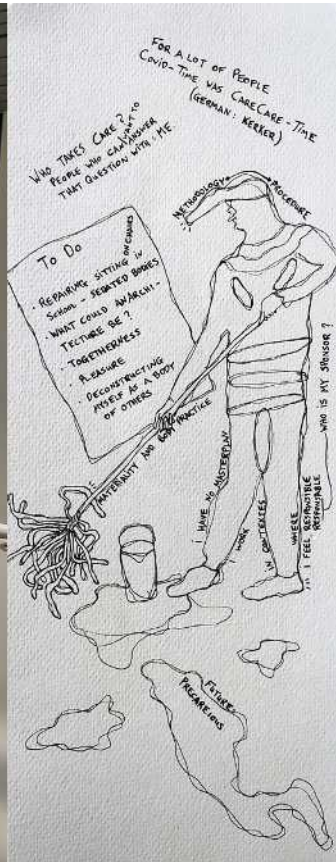 FOR A LOT OF PEOPLE
COVID-TIME WAS CARECARE-TIME
(GERMAN: KERKER)
WHO TAKES CARE?
PEOPLE WHO CAN/WANT TO ANSWER
THAT QUESTION WITH: ME
METHODOLOGY
PROCEDURE
TO DO
· REPAIRING SITTING ON CHAIRS IN
SCHOOL - SEDATED BODIES
· WHAT COULD ANARCHI-
TECTURE BE?
· TOGETHERNESS
· PLEASURE
· DECONSTRUCTING
MYSELF AS A BODY
OF OTHERS
MATERIALITY AND BODY PRACTICE
I HAVE NO MASTERPLAN
I WORK
IN CONTEXTES
WHERE
I FEEL RESPONSIBLE
RESPONSABLE
WHO IS MY SPONSOR?
FUTURE
PRECAREIOUS